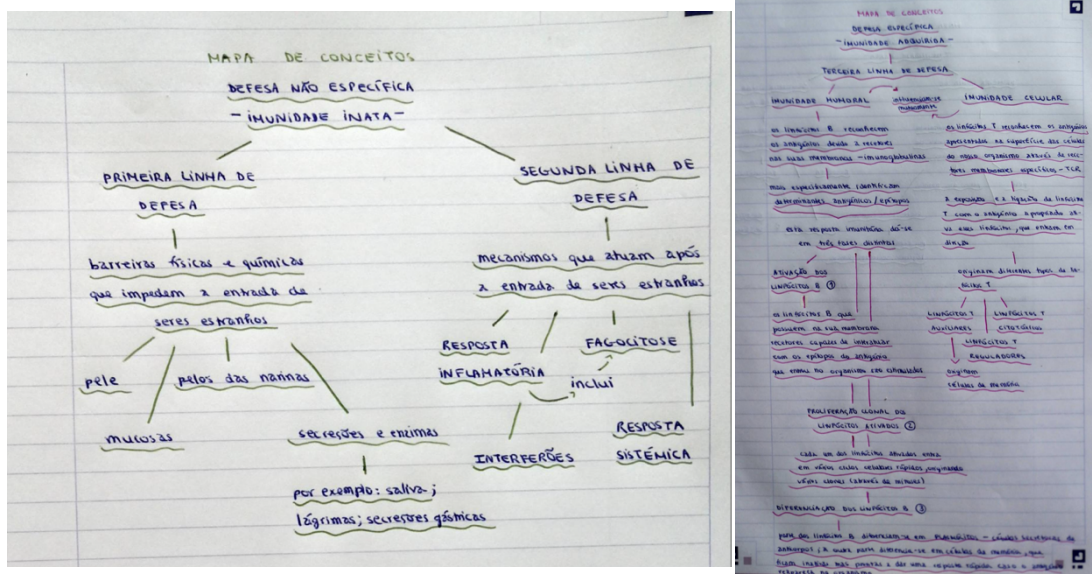 MAPA DE CONCEITOS
DEFESA NÃO ESPECÍFICA
- IMUNIDADE INATA -
PRIMEIRA LINHA DE
DEFESA
barreiras físicas e químicas
que impedem a entrada de
seres estranhos
pele
mucosas
pelos das narinas
secreções e enzimas
por exemplo: saliva;
lágrimas; secreções gástricas
SEGUNDA LINHA DE
DEFESA
mecanismos que atuam após
a entrada de seres estranhos
RESPOSTA
INFLAMATÓRIA
inclui
FAGOCITOSE
INTERFERÕES
RESPOSTA
SISTÉMICA
MAPA DE CONCEITOS
DEFESA ESPECÍFICA
- IMUNIDADE ADQUIRIDA -
TERCEIRA LINHA DE DEFESA
IMUNIDADE HUMORAL
influenciam-se
mutuamente
IMUNIDADE CELULAR
os linfócitos B reconhecem
os antigénios devido a recetores
nas suas membranas - imunoglobulinas
mais especificamente identificam
determinantes antigénicos/epítopos
esta resposta imunitária dá-se
em três fases distintas
ATIVAÇÃO DOS
LINFÓCITOS B ①
os linfócitos B que
possuem na sua membrana
recetores capazes de interatuar
com os epítopos do antigénio
que entrou no organismo são estimulados
PROLIFERAÇÃO CLONAL DOS
LINFÓCITOS ATIVADOS ②
cada um dos linfócitos ativados entra
em vários ciclos celulares rápidos, originando
vários clones (através de mitoses)
DIFERENCIAÇÃO DOS LINFÓCITOS B ③
parte dos linfócitos B diferenciam-se em plasmócitos - células secretoras de
anticorpos; a outra parte diferencia-se em células de memória, que
ficam inativas mas prontas a dar uma resposta rápida caso o antigénio
os linfócitos T reconhecem os antigénios
apresentados na superfície das células
do nosso organismo através de rece-
tores membranares específicos - TCR
a exposição e a ligação do linfócito
T com o antigénio apropriado
esses linfócitos, que entram em
divisão
originam diferentes tipos de
LINFÓCITOS T
AUXILIARES
LINFÓCITOS T
CITOTÓXICOS
LINFÓCITOS T
REGULADORES
originam
células de memória